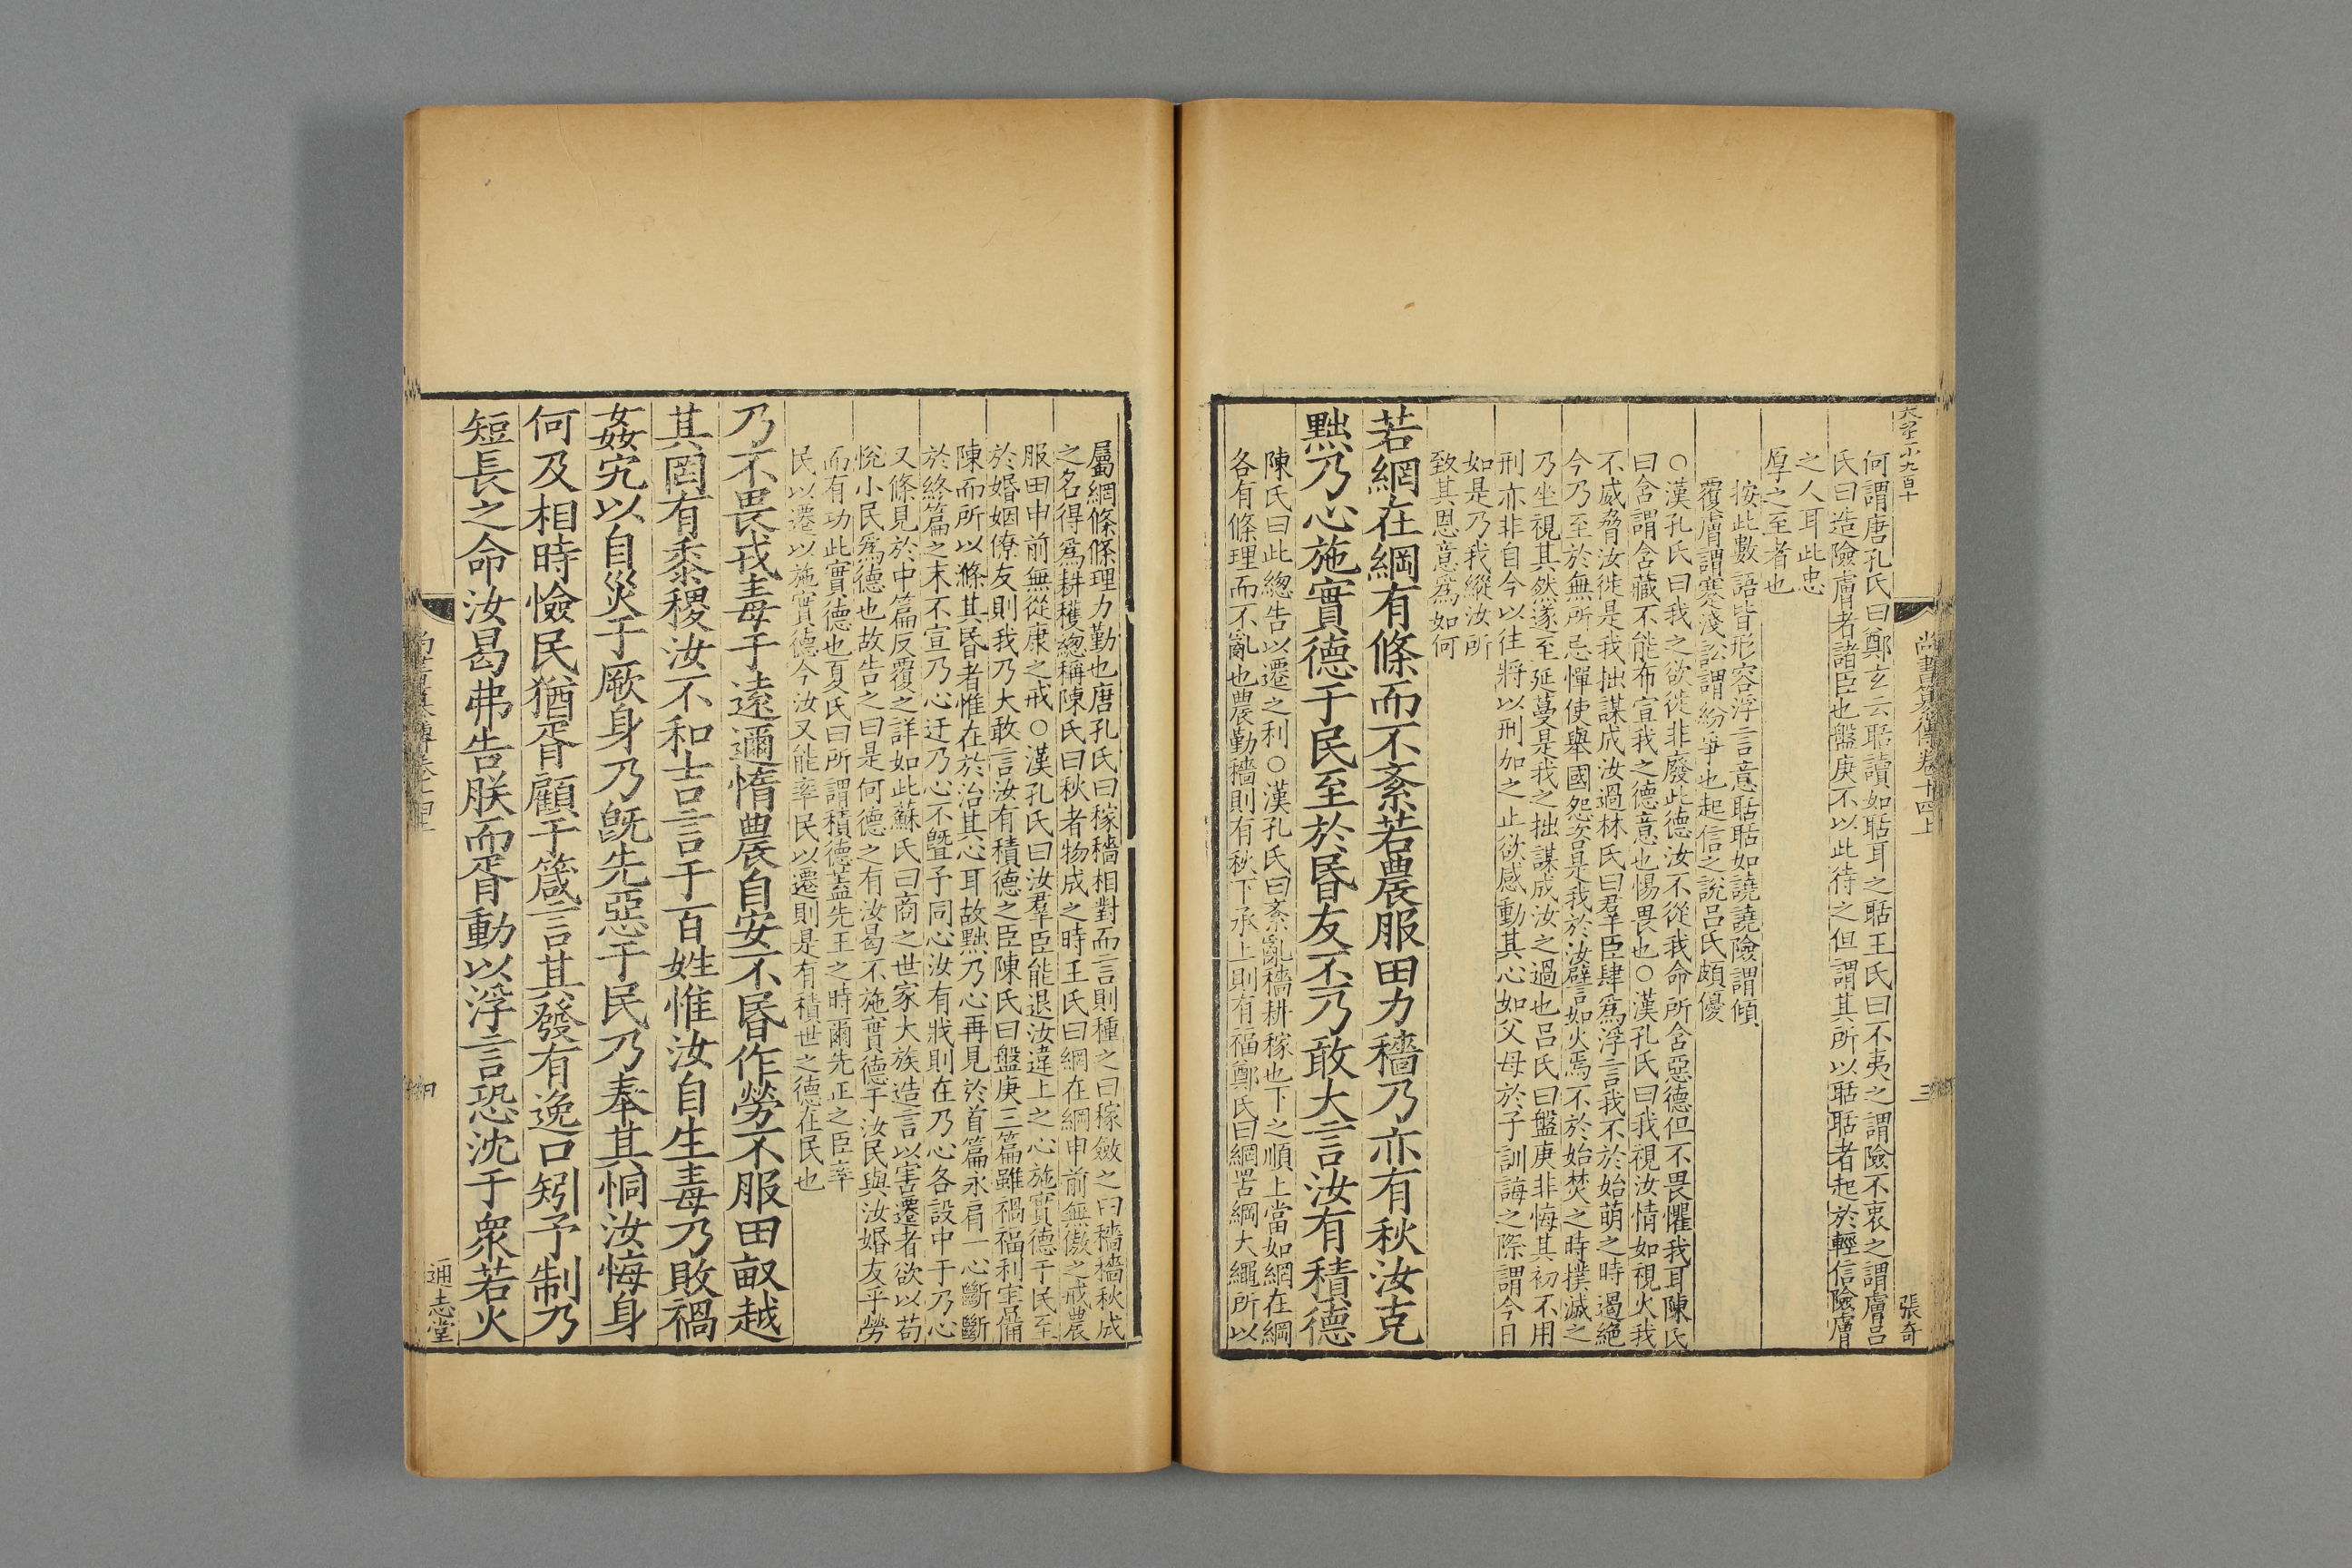 尚書纂傳卷十四上
三
張奇
何謂唐孔氏曰鄭玄云聒讀如聒耳之聒王氏曰不夷之謂險不衷之謂膚呂
氏曰造險膚者諸臣也盤庚不以此待之但謂其所以聒聒者起於輕信險膚
之人耳此忠
厚之至者也
按此數語皆形容浮言意聒聒如譊譊險謂傾
覆膚謂淺訟謂紛爭也起信之說呂氏頗優
○漢孔氏曰我之欲徙非廢此德汝不從我命所含惡德但不畏懼我耳陳氏
曰含謂含藏不能布宣我之德意也惕畏也○漢孔氏曰我視汝情如視火我
不威脅汝徙是我拙謀成汝過林氏曰羣臣肆為浮言我不於始萌之時遏絶
今乃至於無所忌憚使舉國怨咨是我於汝譬如火焉不於始焚之時撲滅之
乃坐視其然遂至延蔓是我之拙謀成汝之過也呂氏曰盤庚非悔其初不用
刑亦非自今以往將以刑加之止欲感動其心如父母於子訓誨之際謂今日
如是乃我縱汝所
致其恩意為如何
若網在綱有條而不紊若農服田力穡乃亦有秋汝克
黜乃心施實德于民至於昬友丕乃敢大言汝有積德
陳氏曰此總告以遷之利○漢孔氏曰紊亂穡耕稼也下之順上當如網在綱
各有條理而不亂也農勤穡則有秋下承上則有福鄭氏曰網罟綱大繩所以
屬網條條理力勤也唐孔氏曰稼穡相對而言則種之曰稼斂之曰穡穡秋成
之名得為耕穫總稱陳氏曰秋者物成之時王氏曰網在綱申前無傲之戒農
服田申前無從康之戒○漢孔氏曰汝羣臣能退汝違上之心施實德于民至
於婚姻僚友則我乃大敢言汝有積德之臣陳氏曰盤庚三篇雖禍福利害備
陳而所以滌其昬者惟在於治其心耳故黜乃心再見於首篇永肩一心斷斷
於終篇之末不宣乃心迂乃心不曁予同心汝有戕則在乃心各設中于乃心
又條見於中篇反覆之詳如此蘇氏曰商之世家大族造言以害遷者欲以苟
悅小民為德也故告之曰是何德之有汝曷不施實德于汝民與汝婚友乎勞
而有功此實德也夏氏曰所謂積德蓋先王之時爾先正之臣率
民以遷以施實德今汝又能率民以遷則是有積世之德在民也
乃不畏戎毒于遠邇惰農自安不昬作勞不服田畝越
其罔有黍稷汝不和吉言于百姓惟汝自生毒乃敗禍
姦宄以自災于厥身乃旣先惡于民乃奉其恫汝悔身
何及相時憸民猶胥顧于箴言其發有逸口矧予制乃
短長之命汝曷弗告朕而胥動以浮言恐沈于衆若火
通志堂